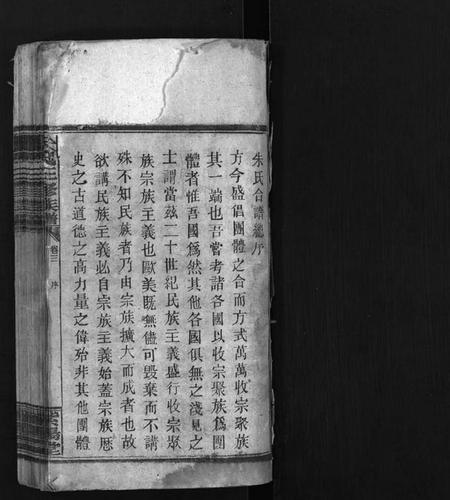 朱氏合譜總序
方今盛倡團體之合而方式萬萬收宗聚族
其一端也吾嘗考諸各國以收宗聚族爲團
體者惟吾國爲然其他各國俱無之淺見之
士謂當玆二十世紀民族主義盛行收宗聚
族宗族主義也歐美旣無儘可毀棄而不講
殊不知民族者乃由宗族擴大而成者也故
欲講民族主義必自宗族主義始蓋宗族歷
史之古道德之高力量之偉殆非其他團體
卷二 序